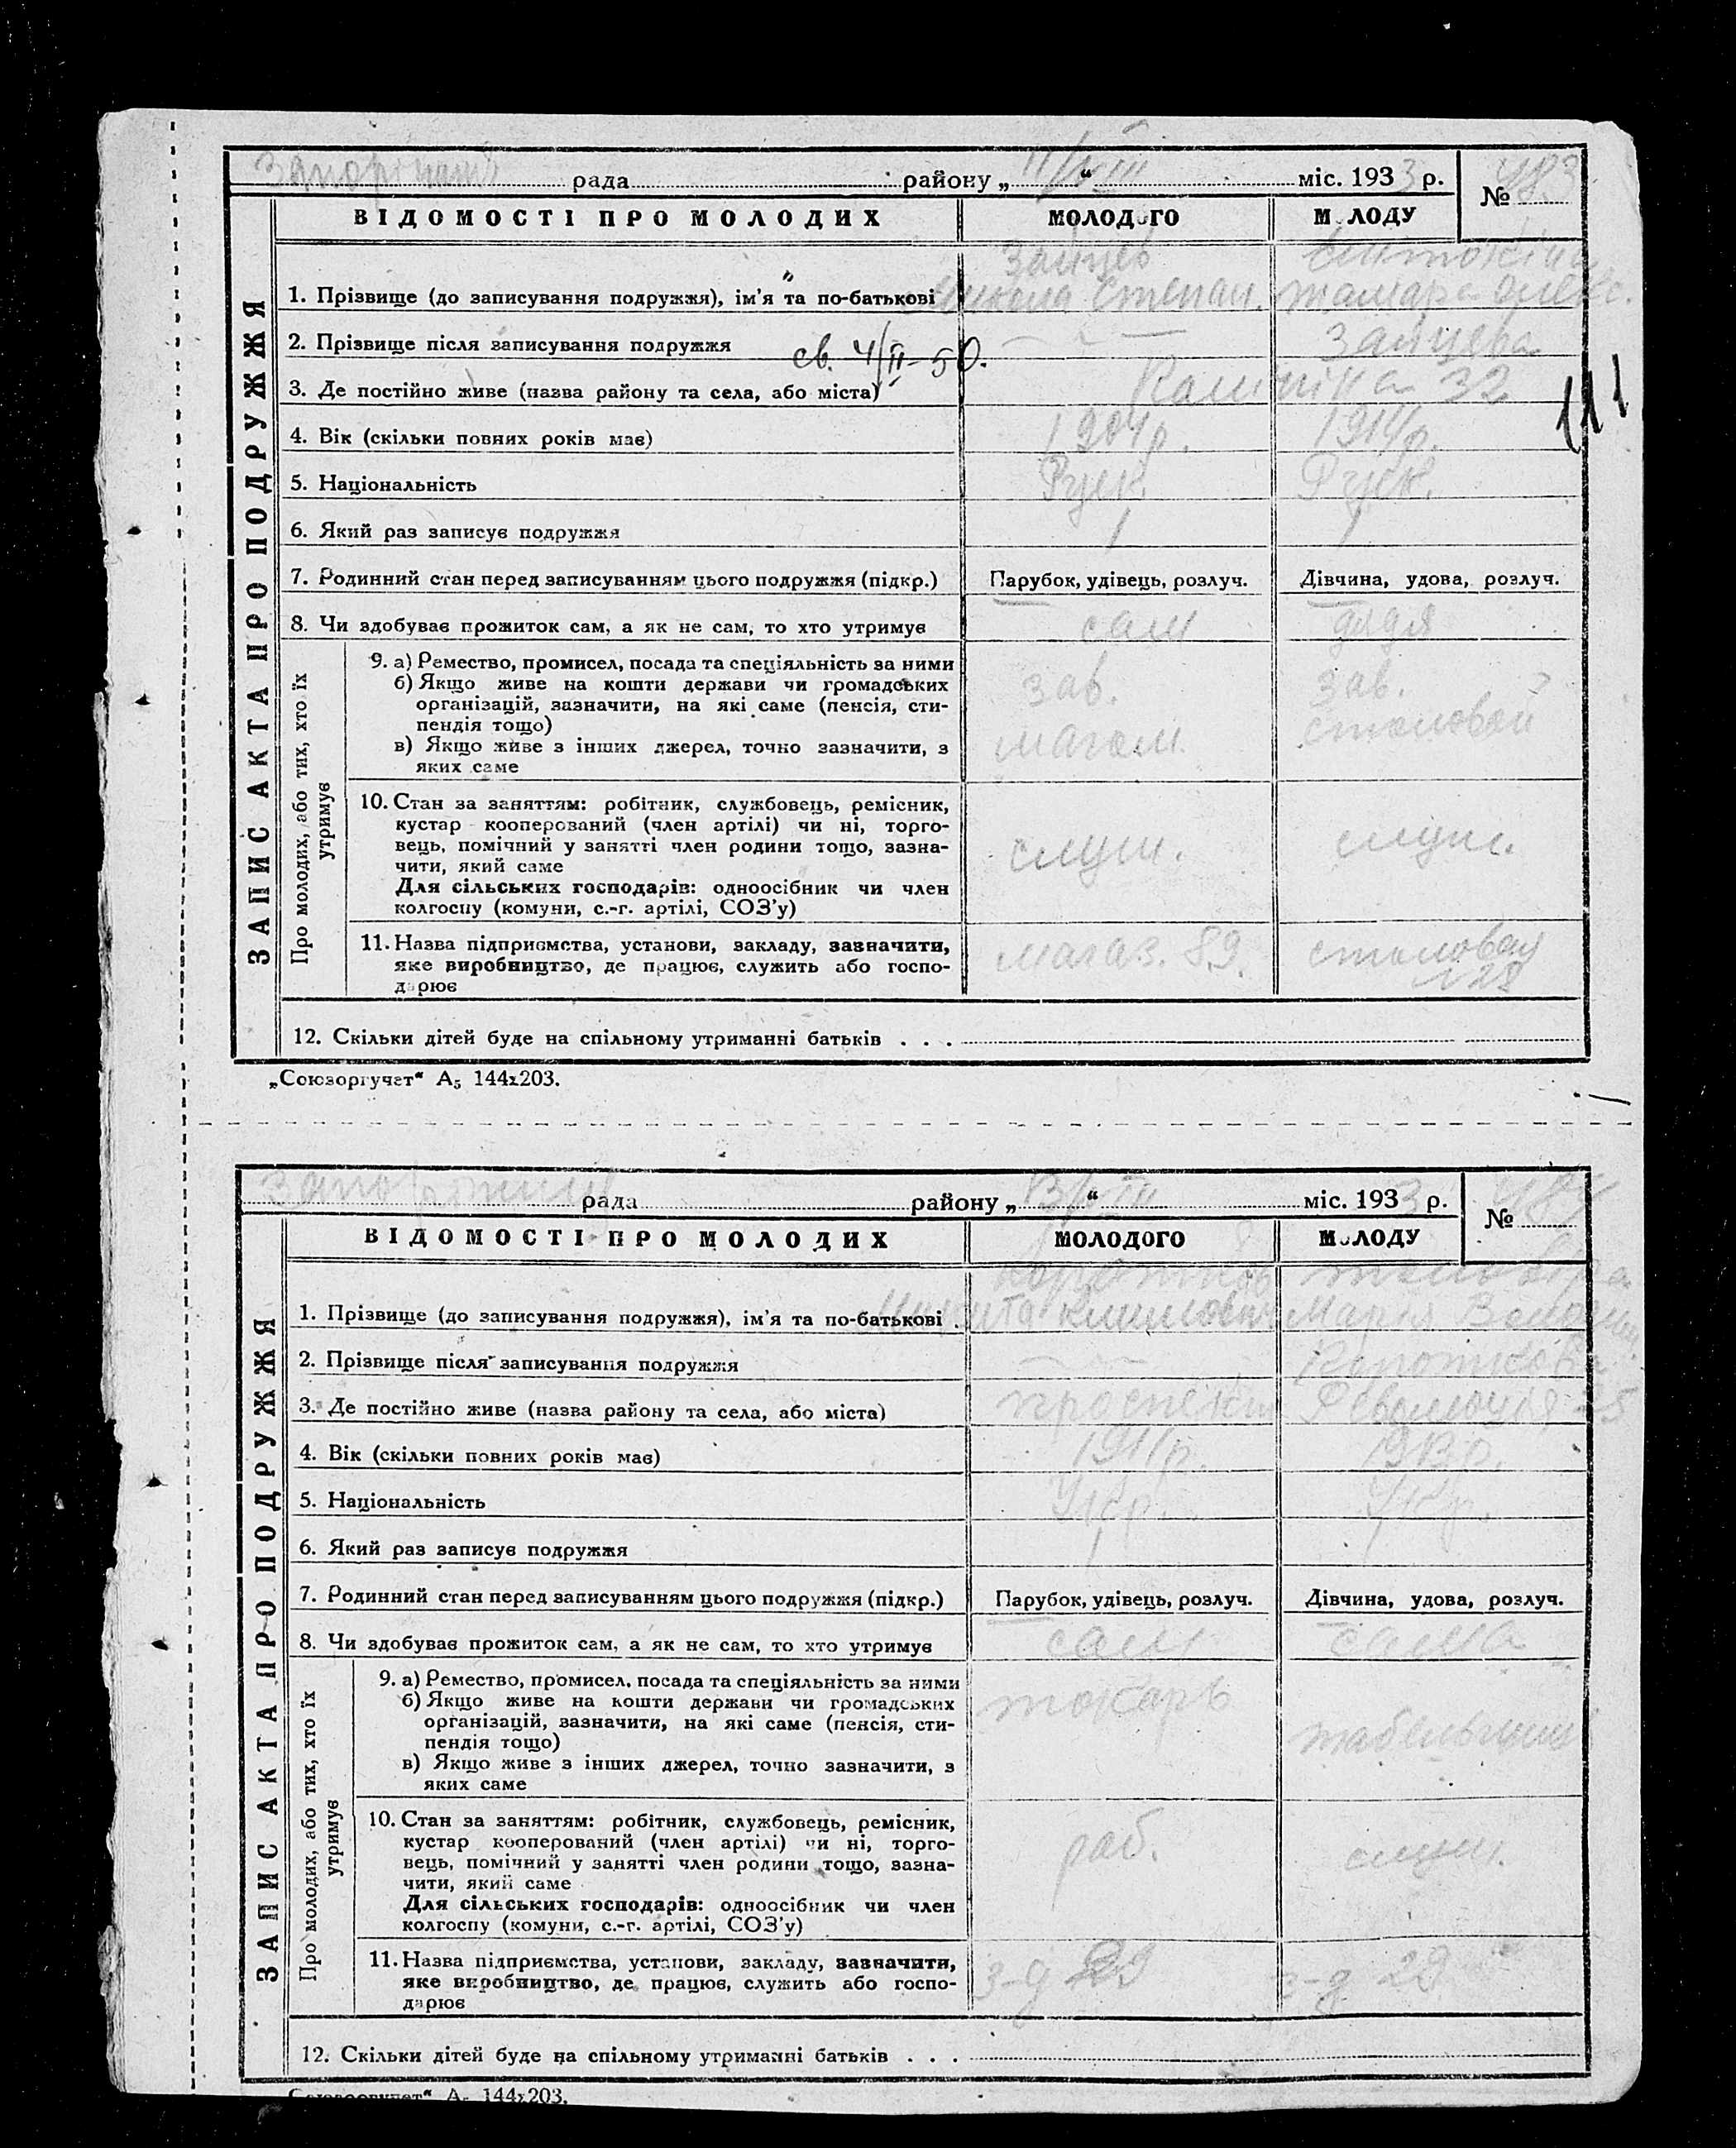 рада району „11/VIII“ міс. 1933 р. № 483
ВІДОМОСТІ ПРО МОЛОДИХ МОЛОДОГО МОЛОДУ
ЗАПИС АКТА ПРО ПОДРУЖЖЯ
Зайцев
1. Прізвище (до записування подружжя), ім'я та по-батькові Микола Степан. Тамара Олекс.
2. Прізвище після записування подружжя — " — Зайцева
св. 4/II-50.
3. Де постійно живе (назва району та села, або міста) 32
111
4. Вік (скільки повних років має) 1904р. 1914р.
5. Національність Руск. Руск.
6. Який раз записує подружжя 1 1
7. Родинний стан перед записуванням цього подружжя (підкр.) Парубок, удівець, розлуч. Дівчина, удова, розлуч.
8. Чи здобуває прожиток сам, а як не сам, то хто утримує сам дядя
Про молодих, або тих, хто їх утримує
9. а) Ремество, промисел, посада та спеціяльність за ними
б) Якщо живе на кошти держави чи громадських зав. зав.
організацій, зазначити, на які саме (пенсія, сти-
пендія тощо) столовой
в) Якщо живе з інших джерел, точно зазначити, з магазм.
яких саме
10. Стан за заняттям: робітник, службовець, ремісник,
кустар кооперований (член артілі) чи ні, торго-
вець, помічний у занятті член родини тощо, зазна- служ. служ.
чити, який саме
Для сільських господарів: одноосібник чи член
колгоспу (комуни, с.-г. артілі, СОЗ'у)
11. Назва підприємства, установи, закладу, зазначити, столовая
яке виробництво, де працює, служить або госпо- магаз. 89. №28
дарює
12. Скільки дітей буде на спільному утриманні батьків . . .
„Союзоргучет“ А5 144х203.
рада району „13/VIII“ міс. 1933 р. № 484
ВІДОМОСТІ ПРО МОЛОДИХ МОЛОДОГО МОЛОДУ
ЗАПИС АКТА ПРО ПОДРУЖЖЯ
Коротков
1. Прізвище (до записування подружжя), ім'я та по-батькові Микита Климович Марія
2. Прізвище після записування подружжя — " — Короткова
3. Де постійно живе (назва району та села, або міста) проспект Революція 25
4. Вік (скільки повних років має) 1911р. 1913р.
5. Національність Укр. Укр.
6. Який раз записує подружжя 1 1
7. Родинний стан перед записуванням цього подружжя (підкр.) Парубок, удівець, розлуч. Дівчина, удова, розлуч.
8. Чи здобуває прожиток сам, а як не сам, то хто утримує сам сама
Про молодих, або тих, хто їх утримує
9. а) Ремество, промисел, посада та спеціяльність за ними
б) Якщо живе на кошти держави чи громадських токарь
організацій, зазначити, на які саме (пенсія, сти-
пендія тощо) табельщиц
в) Якщо живе з інших джерел, точно зазначити, з
яких саме
10. Стан за заняттям: робітник, службовець, ремісник,
кустар кооперований (член артілі) чи ні, торго-
вець, помічний у занятті член родини тощо, зазна- раб. служ.
чити, який саме
Для сільських господарів: одноосібник чи член
колгоспу (комуни, с.-г. артілі, СОЗ'у)
11. Назва підприємства, установи, закладу, зазначити,
яке виробництво, де працює, служить або госпо- з-д 29 з-д 29
дарює
12. Скільки дітей буде на спільному утриманні батьків . . .
„Союзоргучет“ А5 144х203.